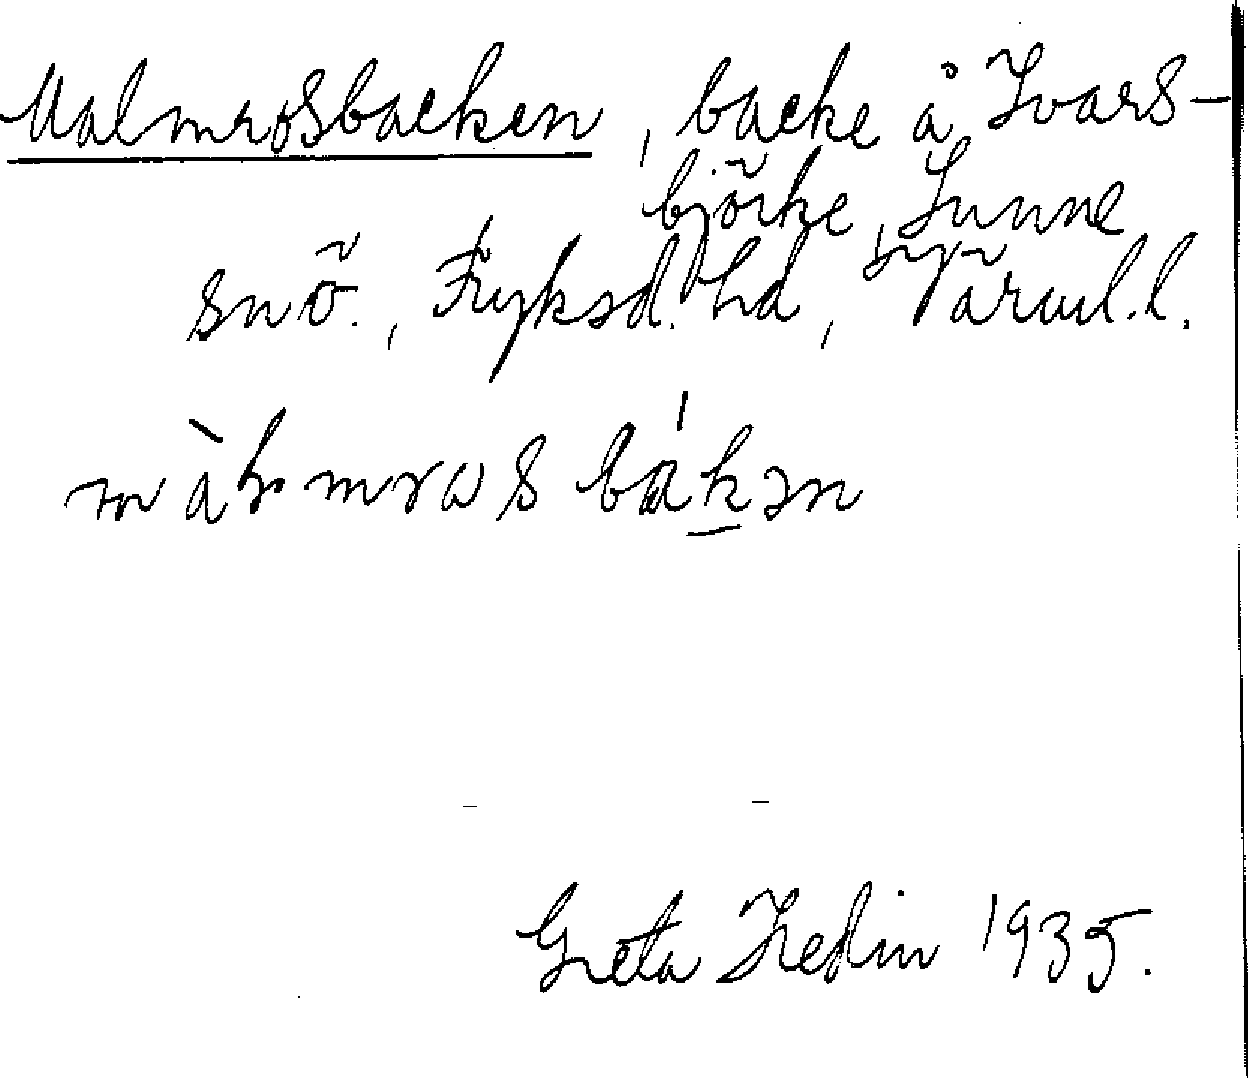 Malmrosbacken, backe å Ivars-
björke, Sunne
snö., Fryksd. hd, Värml.l.
màlmrɷsbákən
Greta Hedin 1935.